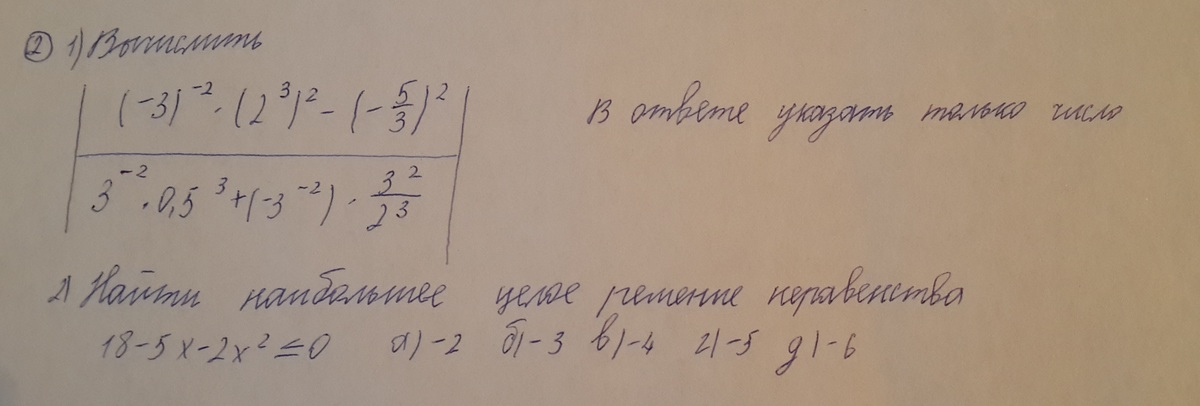 ② 1) Вычислить
| (-3)⁻² · (2³)² - (-5/3)² |
| 3⁻² · 0,5³ + (-3⁻²) · 3²/2³ |
В ответе указать только число
2) Найти наибольшее целое решение неравенства
18-5x-2x² ≤ 0 а) -2 б) -3 в) -4 г) -5 д) -6